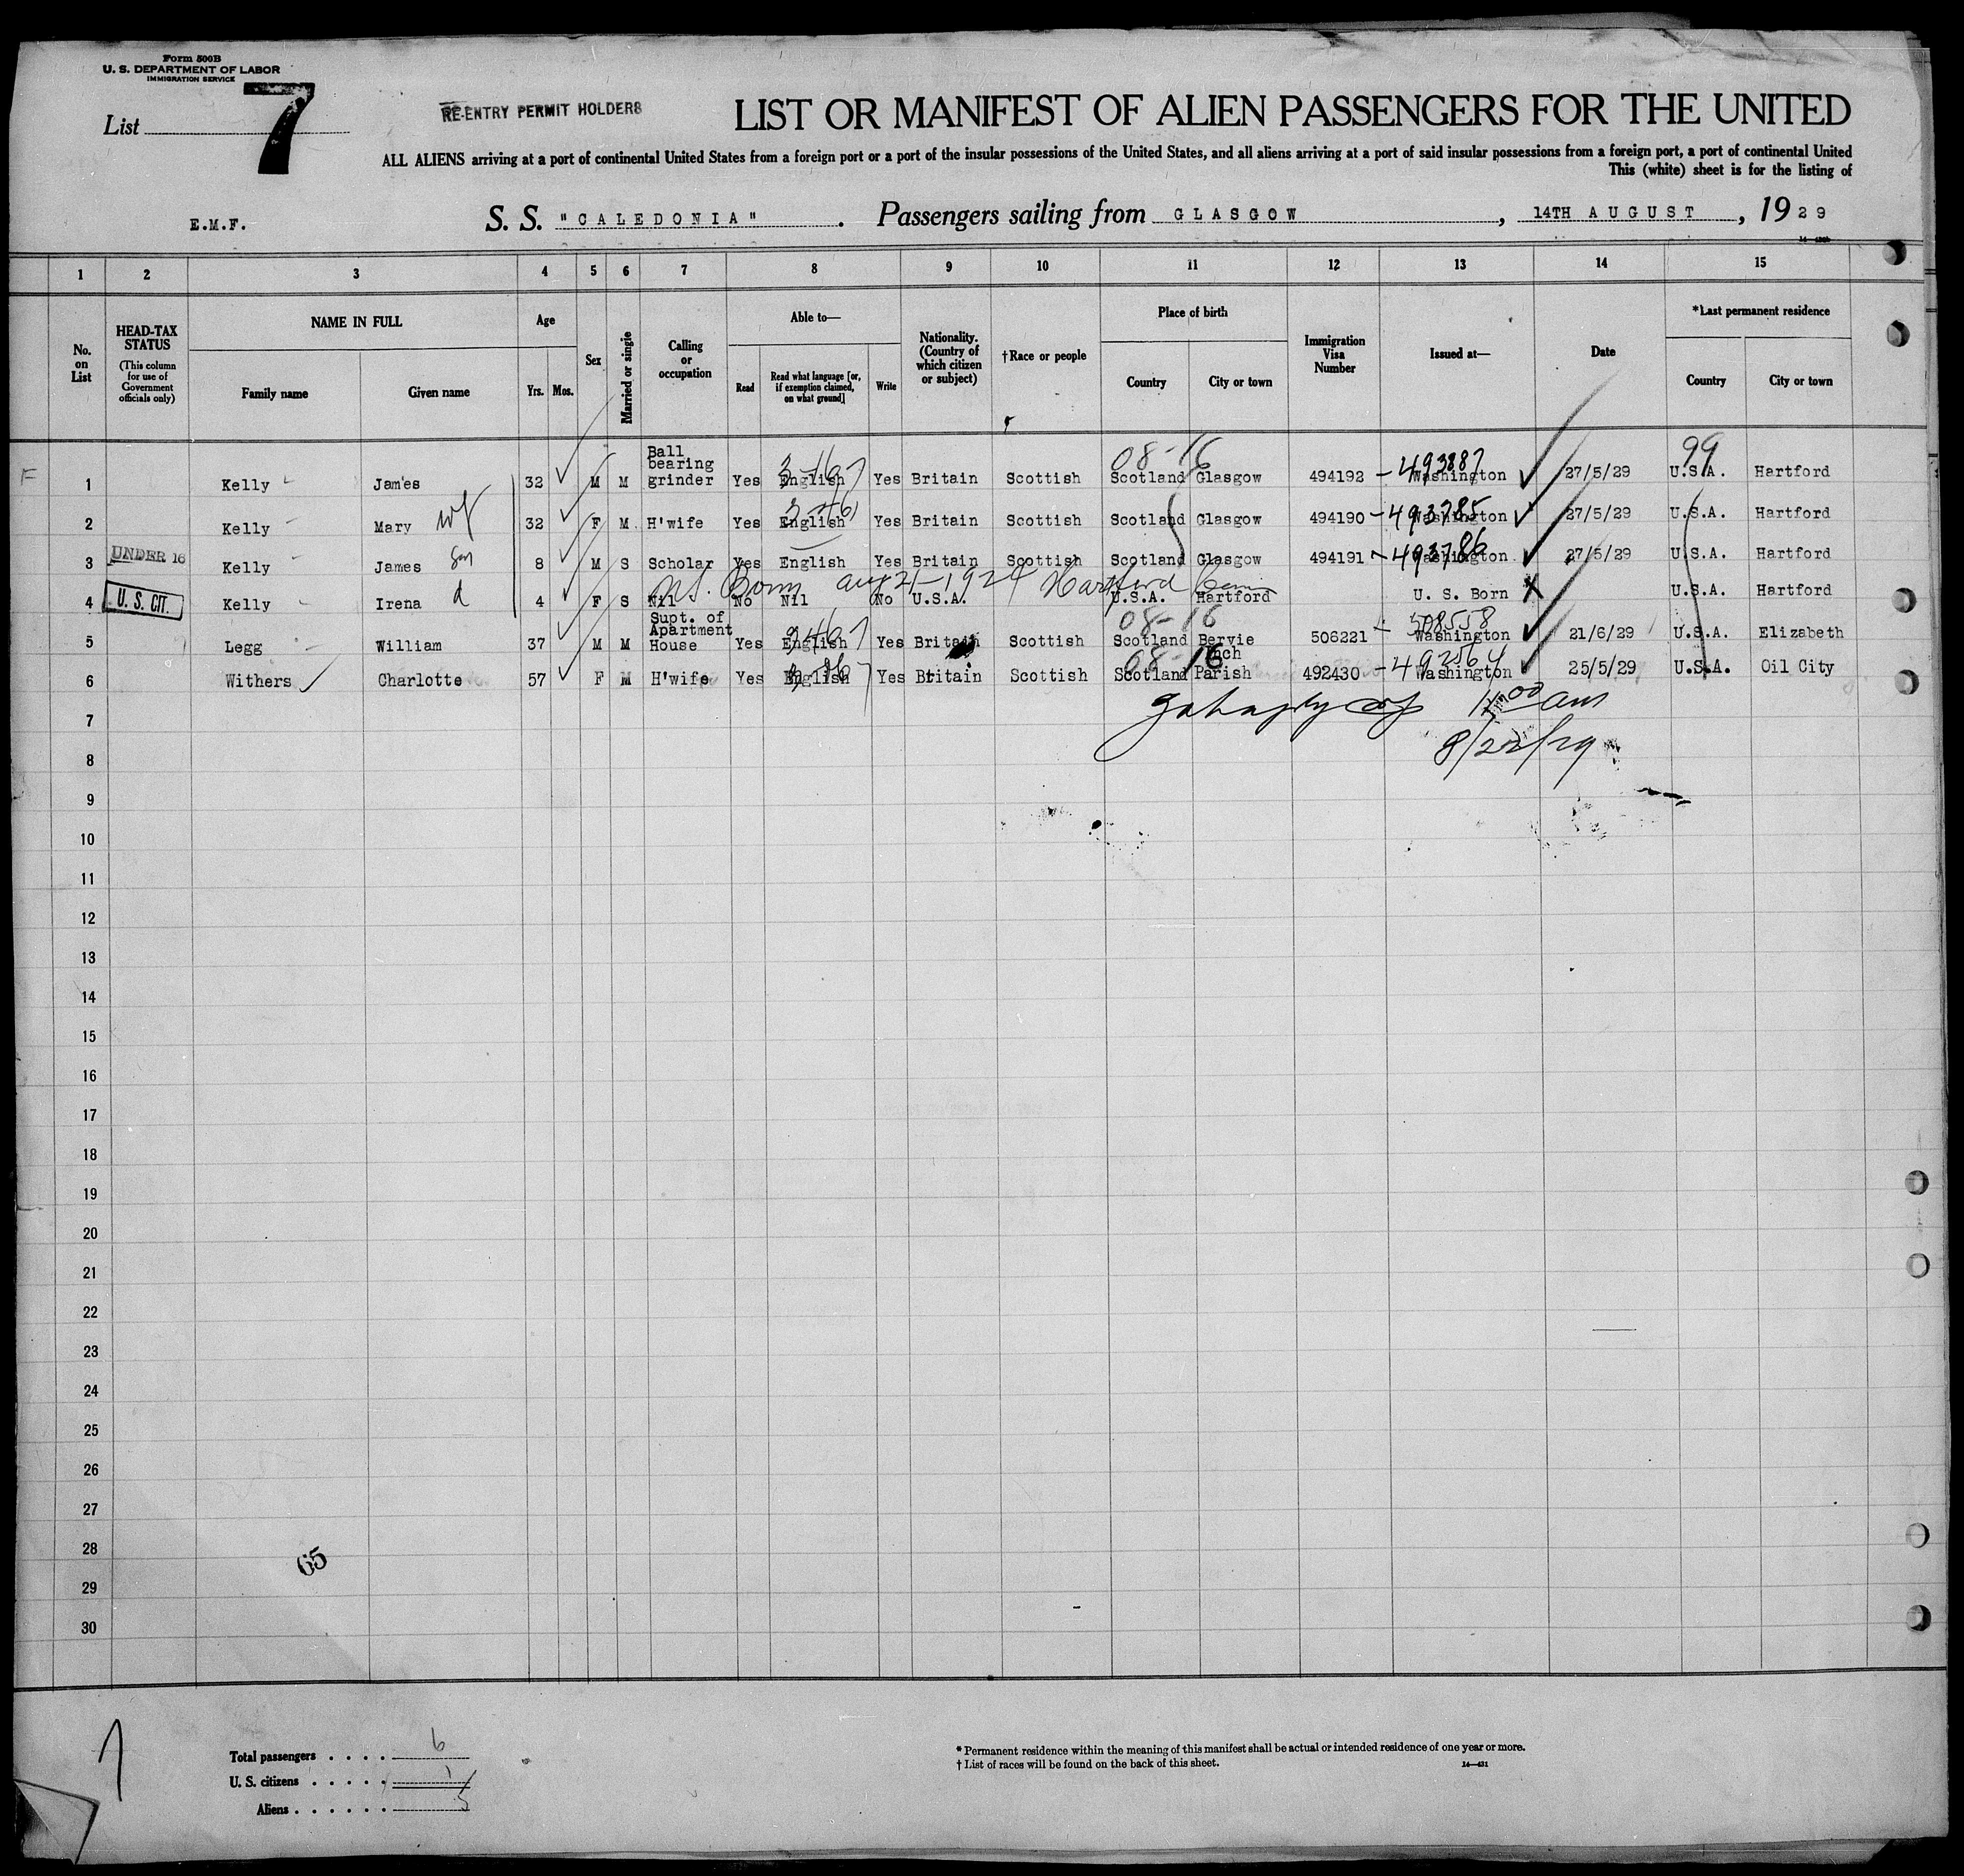 Form 500B
U. S. DEPARTMENT OF LABOR
IMMIGRATION SERVICE
List 7
RE-ENTRY PERMIT HOLDERS
LIST OR MANIFEST OF ALIEN PASSENGERS FOR THE UNITED
ALL ALIENS arriving at a port of continental United States from a foreign port or a port of the insular possessions of the United States, and all aliens arriving at a port of said insular possessions from a foreign port, a port of continental United
This (white) sheet is for the listing of
E.M.F. S. S. "CALEDONIA". Passengers sailing from GLASGOW, 14TH AUGUST, 1929
1 2 3 4 5 6 7 8 9 10 11 12 13 14 15
No. on List
HEAD-TAX STATUS (This column for use of Government officials only)
NAME IN FULL
Family name
Given name
Age
Yrs. Mos.
Sex
Married or single
Calling or occupation
Able to—
Read
Read what language [or, if exemption claimed, on what ground]
Write
Nationality. (Country of which citizen or subject)
†Race or people
Place of birth
Country
City or town
Immigration Visa Number
Issued at—
Date
*Last permanent residence
Country
City or town
F 1 Kelly James 32 M M Ball bearing grinder Yes English Yes Britain Scottish Scotland Glasgow 494192 - 493887 Washington 27/5/29 U.S.A. Hartford
08-16 99
2 Kelly Mary wf 32 F M H'wife Yes English Yes Britain Scottish Scotland Glasgow 494190 - 493785 Washington 27/5/29 U.S.A. Hartford
UNDER 16 3 Kelly James son 8 M S Scholar Yes English Yes Britain Scottish Scotland Glasgow 494191 - 493786 Washington 27/5/29 U.S.A. Hartford
U.S. Born Aug 21-1924 Hartford Conn
U. S. CIT. 4 Kelly Irena d 4 F S Nil No Nil No U.S.A. U.S.A. Hartford U. S. Born X U.S.A. Hartford
08-16
5 Legg William 37 M M Supt. of Apartment House Yes English Yes Britain Scottish Scotland Bervie 506221 - 508558 Washington 21/6/29 U.S.A. Elizabeth
08-16
6 Withers Charlotte 57 F M H'wife Yes English Yes Britain Scottish Scotland Inch Parish 492430 - 492564 Washington 25/5/29 U.S.A. Oil City
7 11 00 am
8 8/22/29
9
10
11
12
13
14
15
16
17
18
19
20
21
22
23
24
25
26
27
28 65
29
30
Total passengers . . . . 6
U. S. citizens . . . . . 1
Aliens . . . . . . 5
* Permanent residence within the meaning of this manifest shall be actual or intended residence of one year or more.
† List of races will be found on the back of this sheet.
14—431